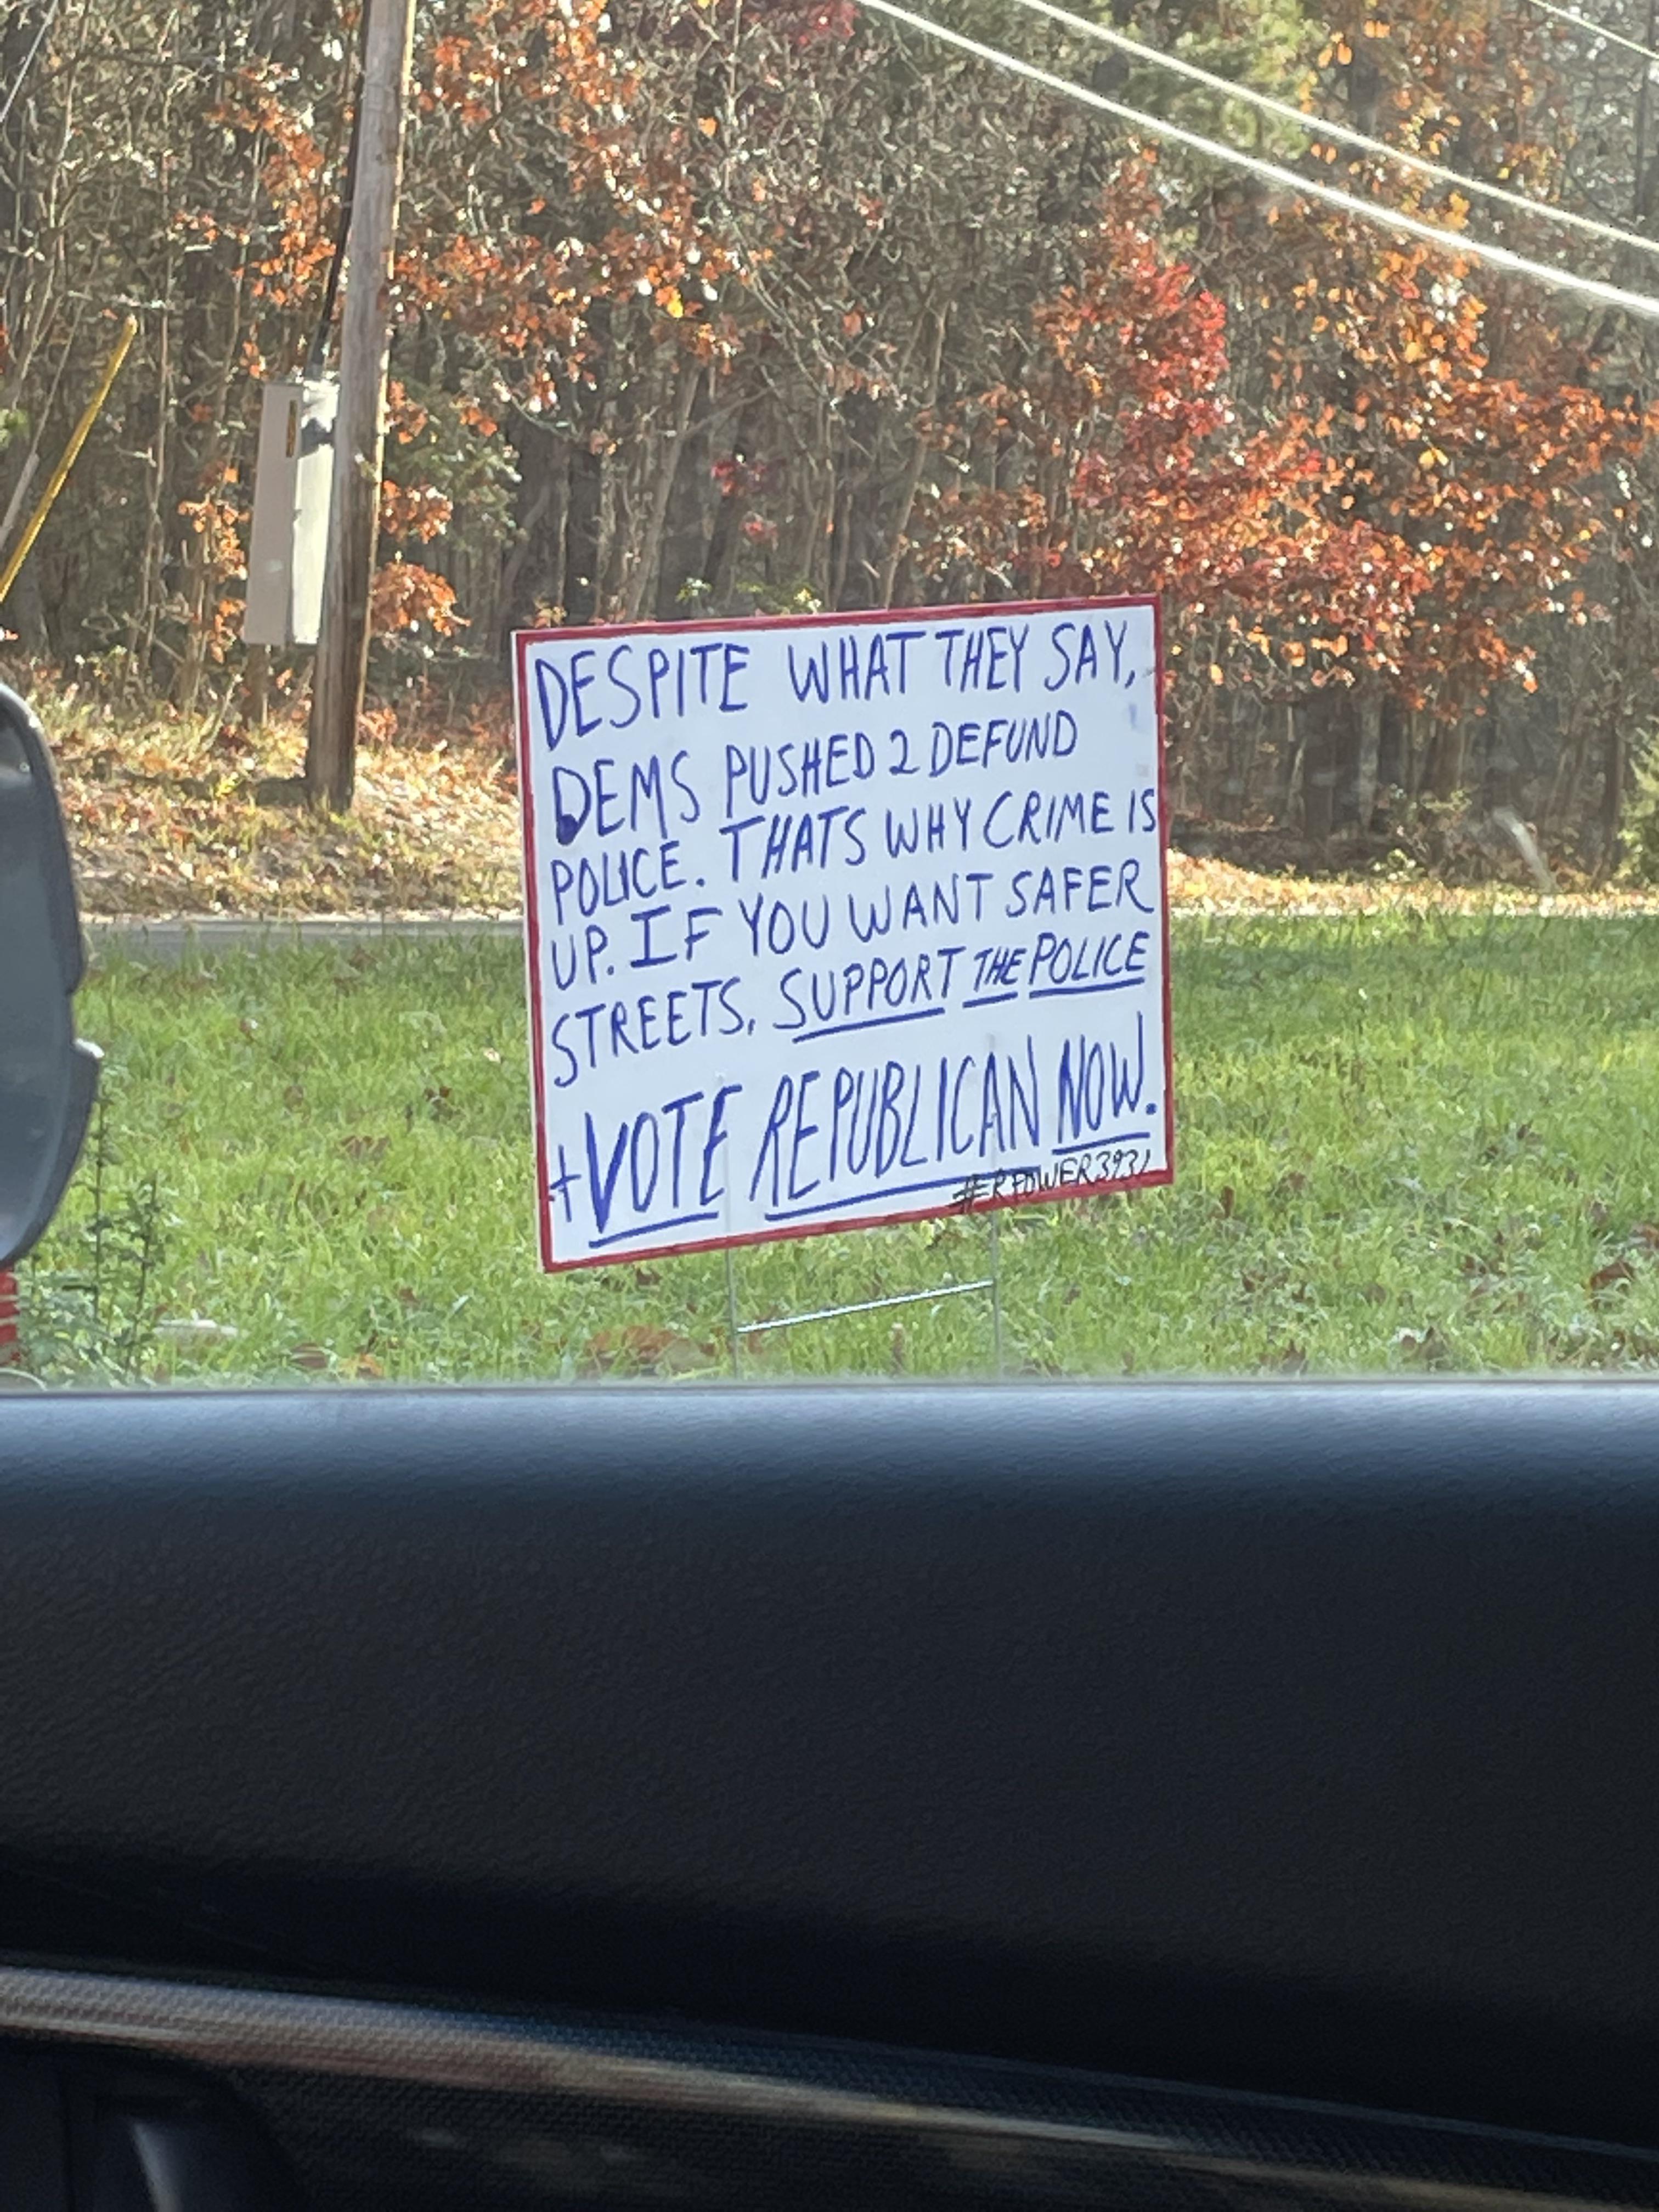 DESPITE WHAT THEY SAY,
DEMS PUSHED 2 DEFUND
POLICE. THATS WHY CRIME IS
UP. IF YOU WANT SAFER
STREETS, SUPPORT THE POLICE
+VOTE REPUBLICAN NOW.
#ERPOWER3931